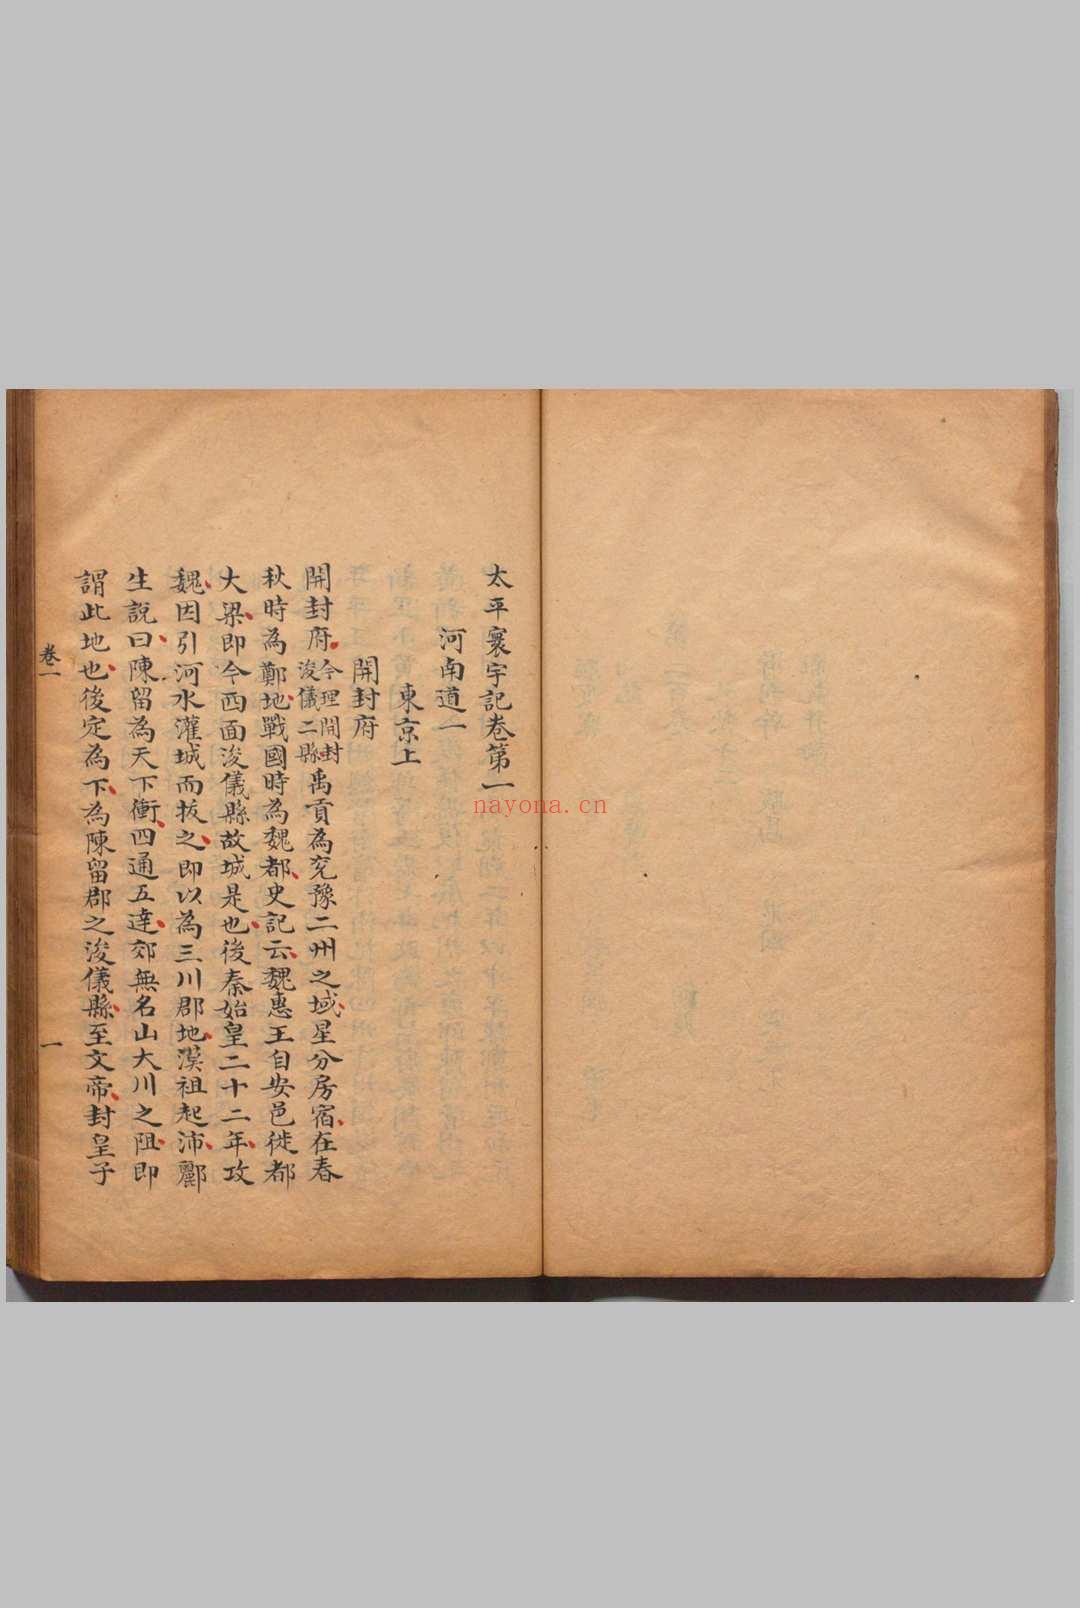 太平寰宇記卷第一
河南道一
東京上
開封府
開封府今理開封浚儀二縣禹貢為兖豫二州之域星分房宿在春
秋時為鄭地戰國時為魏都史記云魏惠王自安邑徙都
大梁即今西面浚儀縣故城是也後秦始皇二十二年攻
魏因引河水灌城而拔之即以為三川郡地漢祖起沛酈
生說曰陳留為天下衝四通五達郊無名山大川之阻即
謂此地也後定為下為陳留郡之浚儀縣至文帝封皇子
卷一
一
nayona.cn